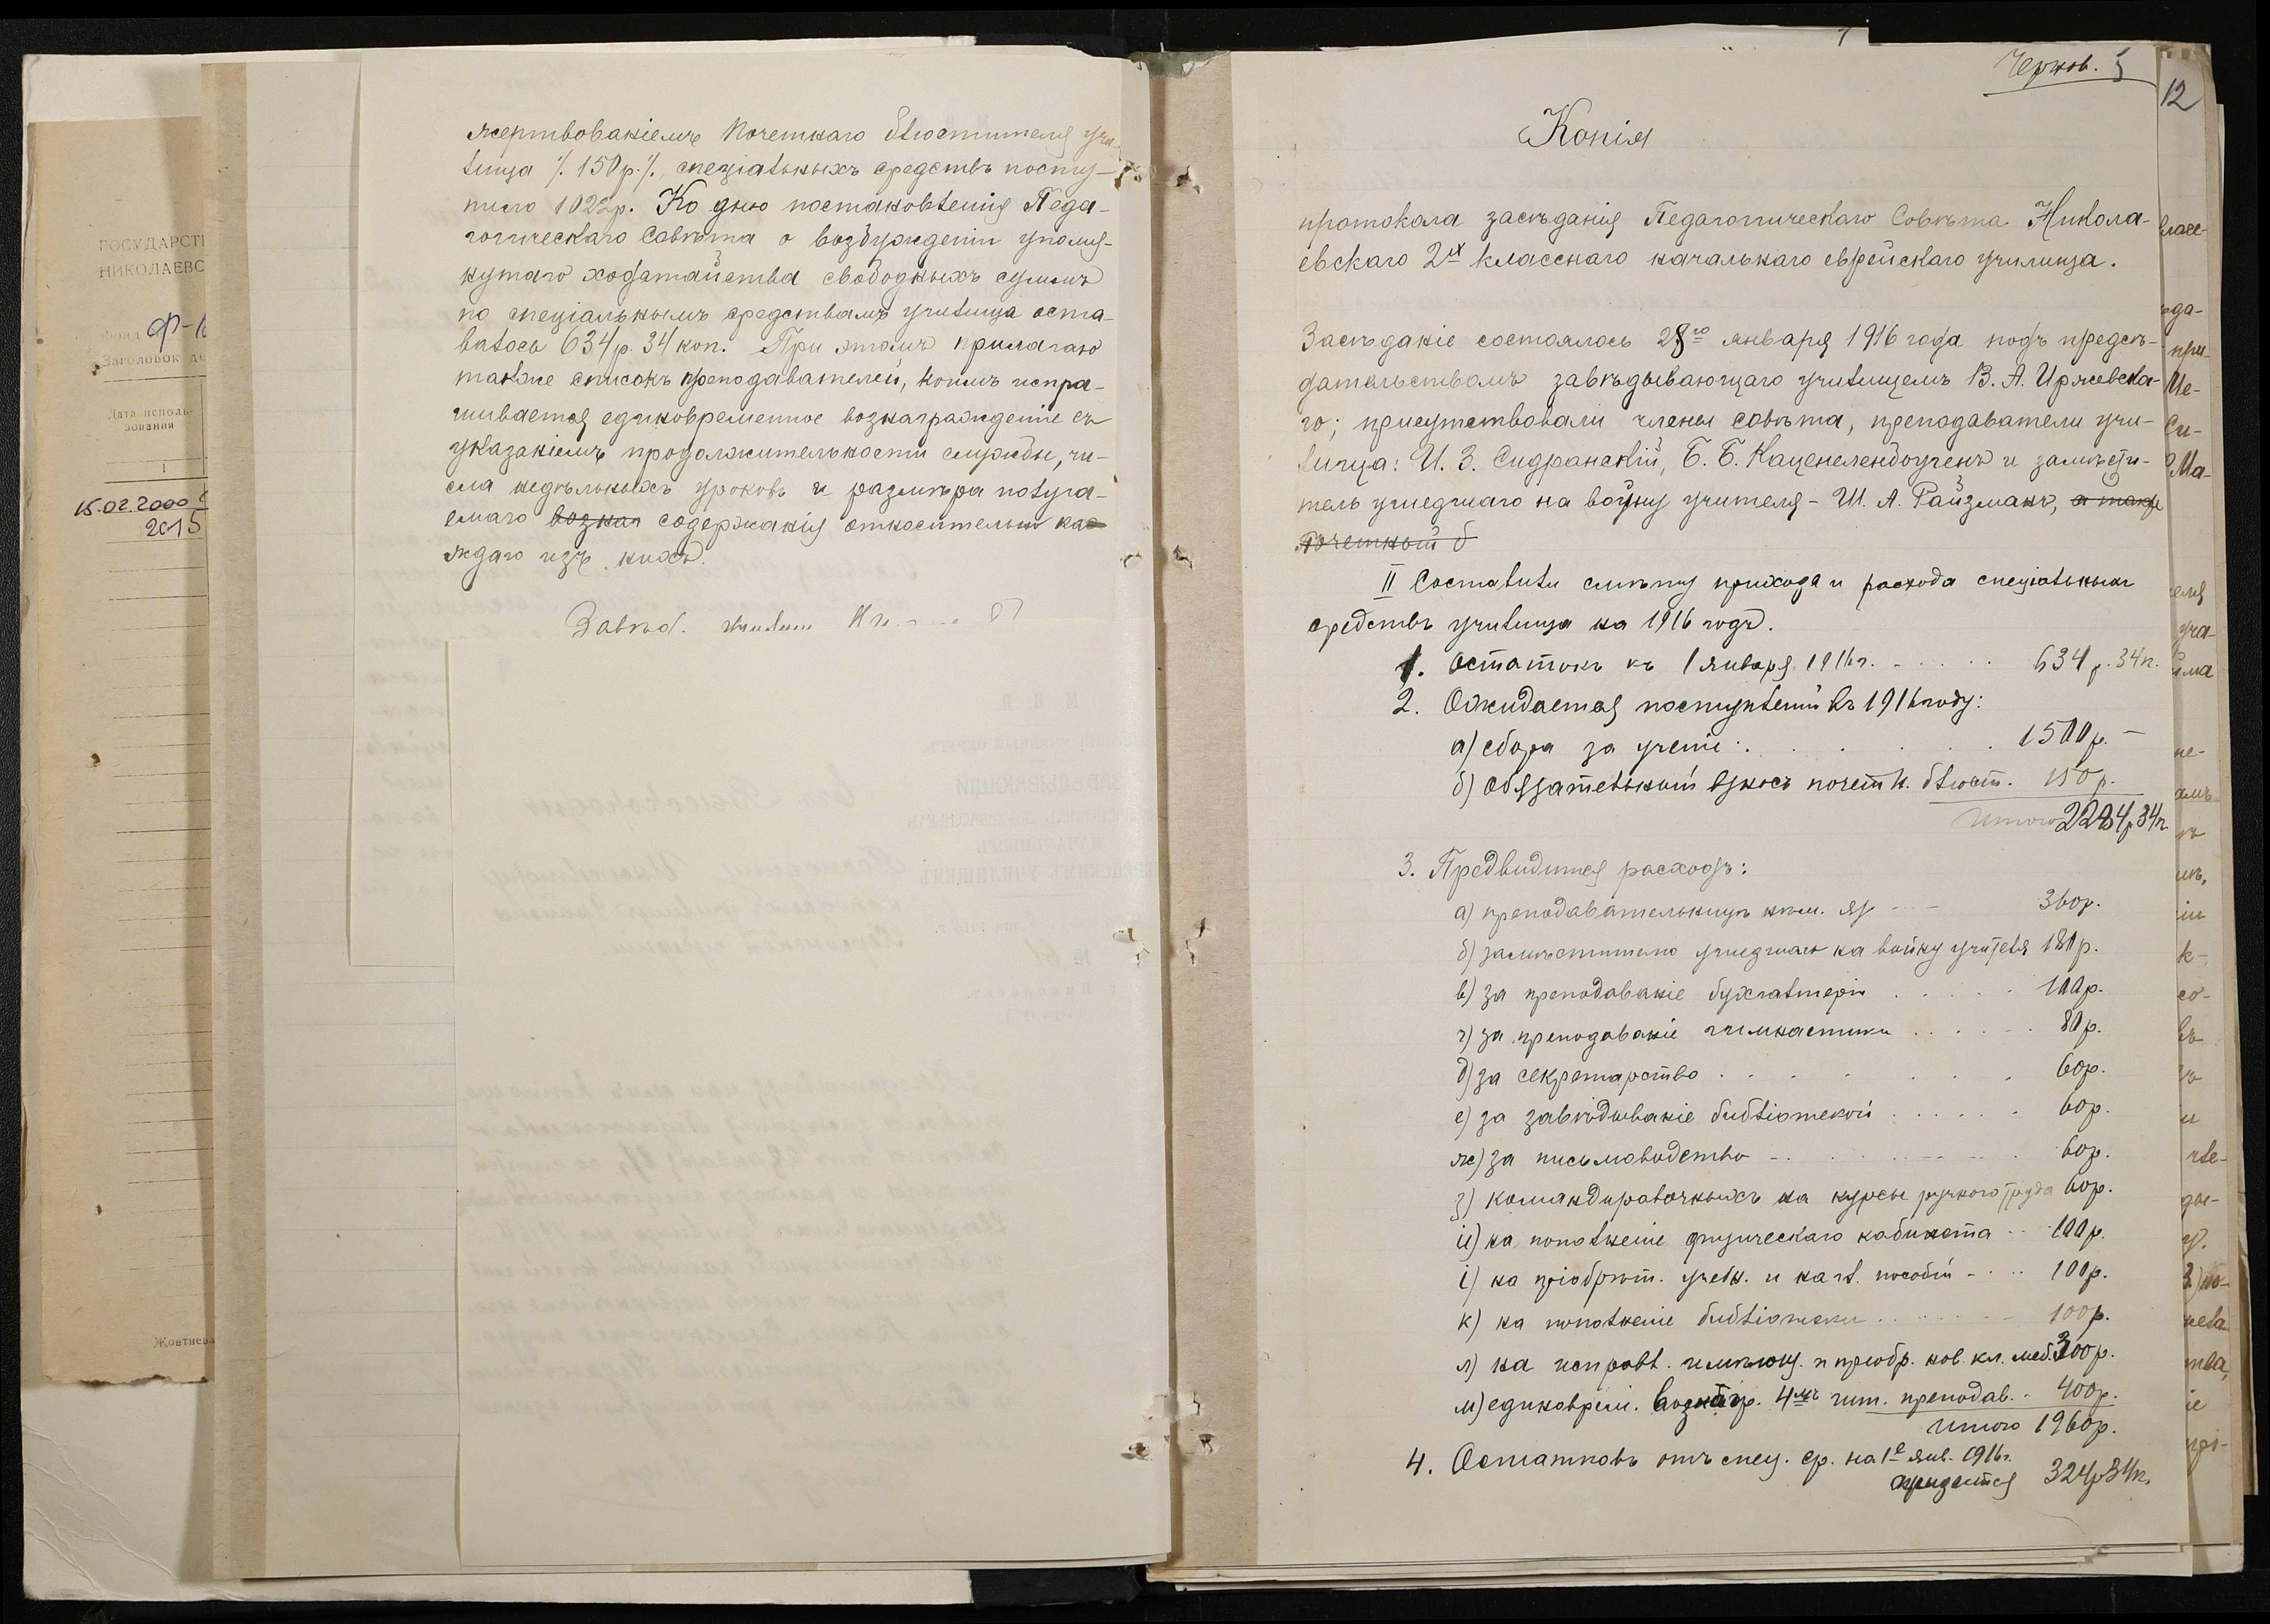 ГОСУДАРСТ
НИКОЛАЕВС
Фонд Ф-
Заголовок де
Дата исполь-
зования
1
15.02.2000
2015
Жовтнева
жертвованіемъ Почетнаго блюстителя учи-
лища /.150 р./, спеціальныхъ средствъ посту-
пило 1022р. Ко дню постановленія Педа-
гогическаго Совѣта о возбужденіи упомя-
нутаго ходатайства свободныхъ суммъ
по спеціальнымъ средствамъ училища оста-
валось 634 р. 34 коп. При этомъ прилагаю
также списокъ преподавателей, коимъ испра-
шивается единовременное вознагражденіе съ
указаніемъ продолжительности службы, чи-
сла недѣльныхъ уроковъ и размѣра получа-
емаго возна содержанія относительно ка-
ждаго изъ нихъ.
Завѣд.
Чернов.
12
Копія
протокола засѣданія Педагогическаго Совѣта Никола-
евскаго 2х класснаго начальнаго еврейскаго училища.
Засѣданіе состоялось 28го января 1916 года подъ предсѣ-
дательствомъ завѣдывающаго училищемъ В. А. Иржевска-
го; присутствовали члены совѣта, преподаватели учи-
лища: И. З. Сидранскій, Б. Б. Каценелендоугенъ и замѣсти-
тель ушедшаго на войну учителя - Ш. А. Райзманъ, а также
почетный б
II Составили смѣту прихода и расхода спеціальныхъ
средствъ училища на 1916 годъ.
1. Остатокъ къ 1 января 1916 г. . . . . . 634 р. 34 к.
2. Ожидается поступленій въ 1916 году:
а) сбора за ученіе . . . . . . 1500 р. —
б) Обязательный взносъ почетн. блюст. 150 р.
Итого 2284р 34к
3. Предвидится расходъ:
а) преподавательницѣ нѣм. яз. - - - 360р.
б) замѣстителю ушедшаго на войну учителя 180 р.
в) за преподаваніе бухгалтеріи . . . . . 100 р.
г) за преподаваніе гимнастики . . . . . 80 р.
д) за секретарство . . . . . . 60р.
е) за завѣдываніе библіотекой . . . . . 60р.
ж) за письмоводство - . . . . . 60р.
з) командировочныхъ на курсы ручного труда 60р.
и) на пополненіе физическаго кабинета - - 100 р.
і) на пріобрѣт. учебн. и нагл. пособій - . . 100р.
к) на пополненіе библіотеки . . . . . 100 р.
л) на исправл. имѣющ. и пріобр. нов. кл. меб. 300 р.
м) единоврем. вознагр. 4мъ шт. преподав. - 400р.
Итого 1960р.
4. Остатковъ отъ спец. ср. на 1е янв. 1916г.
ожидается 324р 34к.